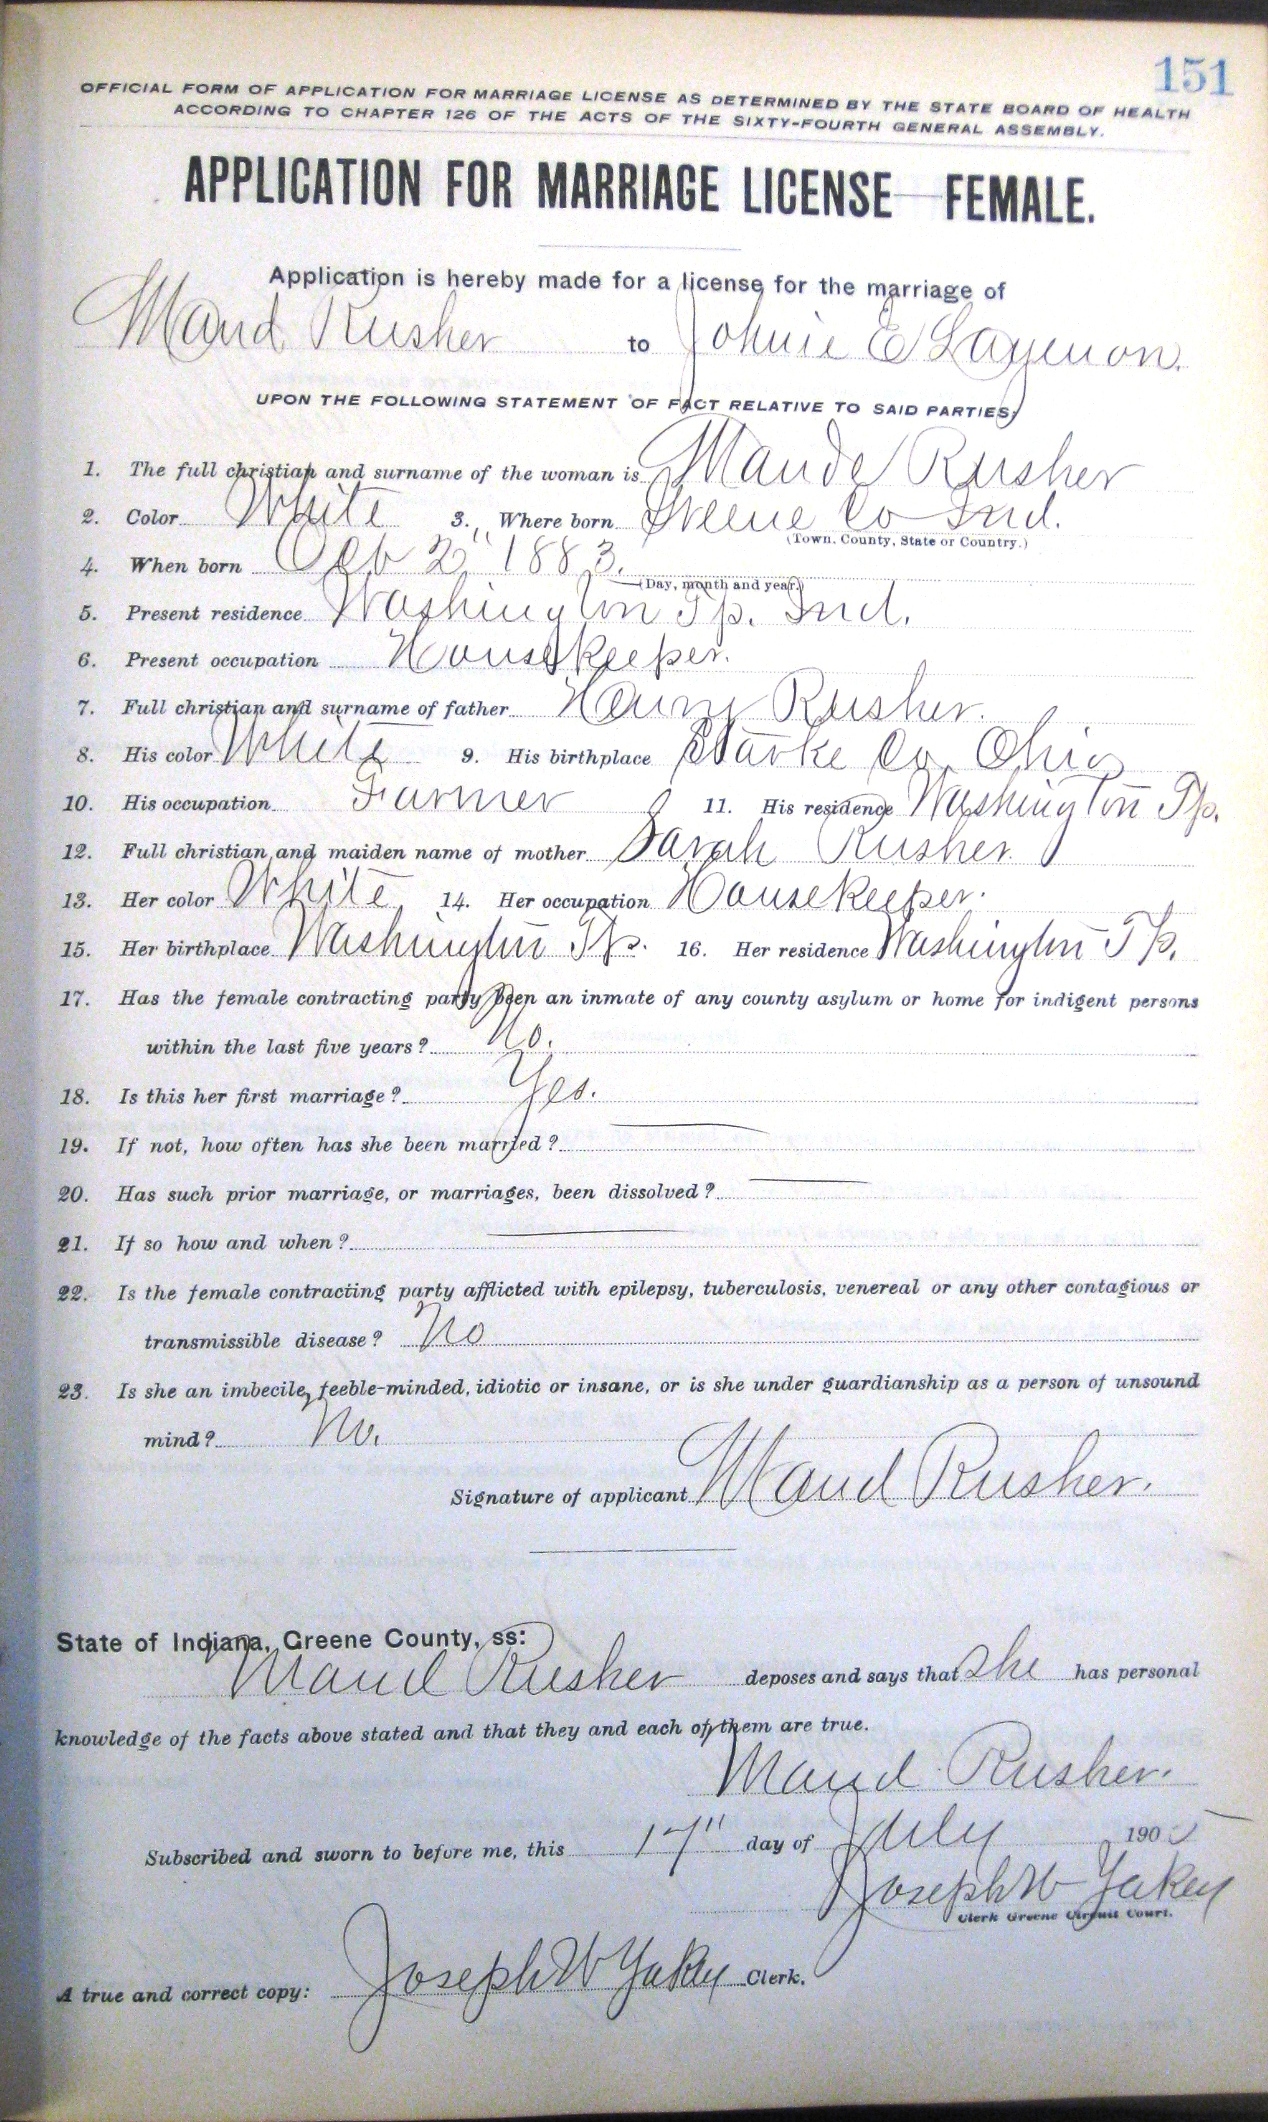 151
OFFICIAL FORM OF APPLICATION FOR MARRIAGE LICENSE AS DETERMINED BY THE STATE BOARD OF HEALTH
ACCORDING TO CHAPTER 126 OF THE ACTS OF THE SIXTY-FOURTH GENERAL ASSEMBLY.
APPLICATION FOR MARRIAGE LICENSE FEMALE.
Application is hereby made for a license for the marriage of
Maud Rusher to Johnie E
UPON THE FOLLOWING STATEMENT OF FACT RELATIVE TO SAID PARTIES;
1. The full christian and surname of the woman is Maude Rusher
2. Color White 3. Where born Greene Co Ind.
(Town, County, State or Country.)
4. When born 2" 1883.
(Day, month and year.)
5. Present residence Washington Tp. Ind.
6. Present occupation Housekeeper.
7. Full christian and surname of father Henry Rusher.
8. His color White 9. His birthplace Starke Co. Ohio
10. His occupation Farmer 11. His residence Washington Tp.
12. Full christian and maiden name of mother Sarah Rusher
13. Her color White 14. Her occupation Housekeeper.
15. Her birthplace Washington Tp. 16. Her residence Washington Tp.
17. Has the female contracting party been an inmate of any county asylum or home for indigent persons
within the last five years? No.
18. Is this her first marriage? Yes.
19. If not, how often has she been married?
20. Has such prior marriage, or marriages, been dissolved?
21. If so how and when?
22. Is the female contracting party afflicted with epilepsy, tuberculosis, venereal or any other contagious or
transmissible disease? No
23. Is she an imbecile, feeble-minded, idiotic or insane, or is she under guardianship as a person of unsound
mind? No.
Signature of applicant Maud Rusher.
State of Indiana, Greene County, ss:
Maud Rusher deposes and says that she has personal
knowledge of the facts above stated and that they and each of them are true.
Maud Rusher.
Subscribed and sworn to before me, this 17" day of July 1905
Joseph W Yakey
Clerk Greene Circuit Court.
A true and correct copy: Joseph W Yakey Clerk.